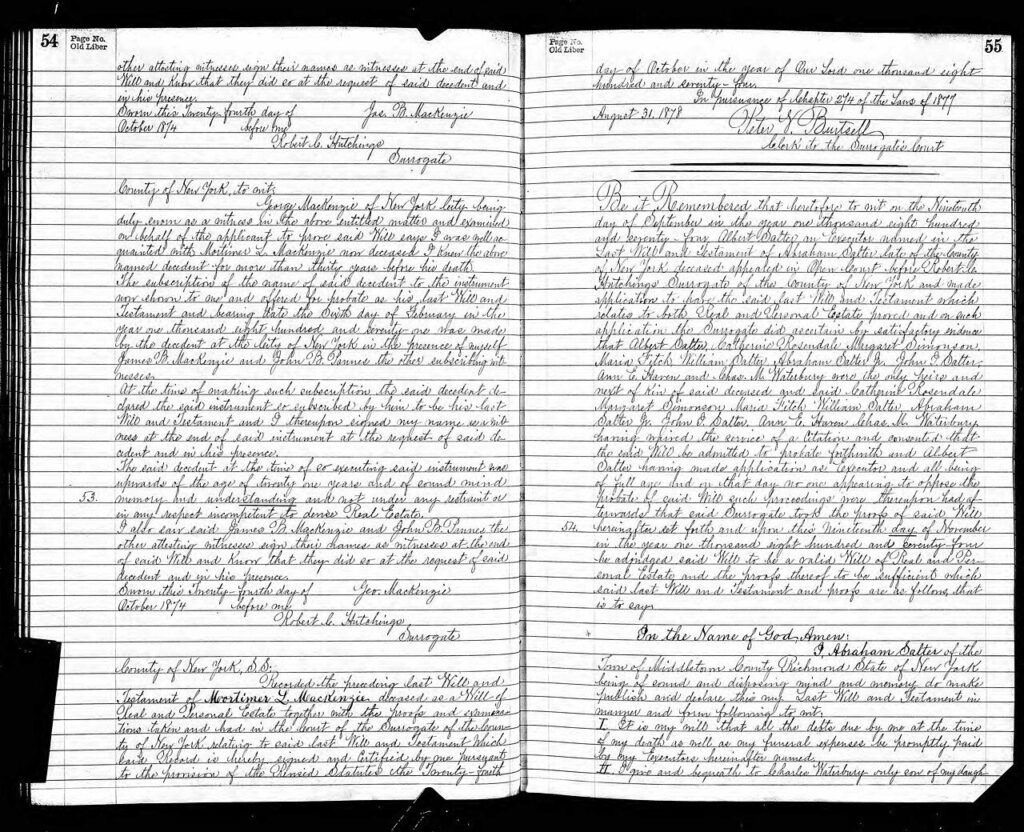 54
Page No.
Old Liber
other attesting witnesses sign their names as witnesses at the end of said
Will and know that they did so at the request of said decedent and
in his presence.
Sworn this Twenty-fourth day of Jas. B. MacKenzie
October 1874 before me
Robert C. Hutchings
Surrogate
County of New York, to wit;
George MacKenzie of New York City being
duly sworn as a witness in the above entitled matter and examined
on behalf of the applicant to prove said Will says I was well ac-
quainted with Mortimer L. MacKenzie now deceased I knew the above
named decedent for more than thirty years before his death.
The subscription of the name of said decedent to the instrument
now shown to me and offered for probate as his last Will and
Testament and bearing date the Sixth day of February in the
year one thousand eight hundred and seventy one was made
by the decedent at the City of New York in the presence of myself
James B. MacKenzie and John B. Pannes the other subscribing wit-
nesses.
At the time of making such subscription the said decedent de-
clared the said instrument so subscribed by him to be his last
Will and Testament and I thereupon signed my name as a wit-
ness at the end of said instrument at the request of said de-
cedent and in his presence.
The said decedent at the time of so executing said instrument was
upwards of the age of twenty one years and of sound mind
53. memory and understanding and not under any restraint or
in any respect incompetent to devise Real Estate.
I also saw said James B. MacKenzie and John B. Pannes the
other attesting witnesses sign their names as witnesses at the end
of said Will and know that they did so at the request of said
decedent and in his presence.
Sworn this Twenty-fourth day of Geo. MacKenzie
October 1874 before me
Robert C. Hutchings
Surrogate
County of New York, S.S.;
Recorded the preceding last Will and
Testament of Mortimer L. MacKenzie deceased as a Will of
Real and Personal Estate together with the proofs and examina-
tions taken and had in the Court of the Surrogate of the Coun-
ty of New York relating to said last Will and Testament Which
said Record is hereby signed and Certified by me pursuant
to the provision of the Revised Statutes the Twenty-fourth
Page No.
Old Liber
55
day of October in the year of Our Lord one thousand eight
hundred and seventy-four.
In pursuance of Chapter 274 of the Laws of 1877
August 31, 1878
Peter V. Burtsell
Clerk to the Surrogate's Court
Be it Remembered that heretofore to wit on the Nineteenth
day of September in the year one thousand eight hundred
and seventy-four Albert Salter an Executor named in the
Last Will and Testament of Abraham Salter late of the County
of New York deceased appeared in Open Court before Robert C.
Hutchings Surrogate of the County of New York and made
application to have the said last Will and Testament which
relates to both Real and Personal Estate proved and on such
application the Surrogate did ascertain by satisfactory evidence
that Albert Salter, Catherine Rosendale Margaret Simonson,
Maria Fitch William Salter, Abraham Salter Jr. John P. Salter,
Ann E. Haven and Chas. M. Waterbury were the only heirs and
next of kin of said deceased and said Catherine Rosendale
Margaret Simonson Maria Fitch William Salter, Abraham
Salter Jr. John P. Salter, Ann E. Haven Chas. M. Waterbury
having waived the service of a Citation and consented that
the said Will be admitted to probate forthwith and Albert
Salter having made application as Executor and all being
of full age and on that day no one appearing to oppose the
probate of said Will such proceedings were thereupon had af-
terwards that said Surrogate took the proofs of said Will
54. hereinafter set forth and upon this Nineteenth day of November
in the year one thousand eight hundred and seventy four
he adjudged said Will to be a valid Will of Real and Per-
sonal Estate and the proofs thereof to be sufficient which
said last Will and Testament and proofs are as follows, that
is to say;
In the Name of God, Amen:
I, Abraham Salter of the
Town of Middletown County Richmond State of New York
being of sound and disposing mind and memory do make
publish and declare this my Last Will and Testament in
manner and form following to wit,
I. It is my will that all the debts due by me at the time
of my death as well as my funeral expenses be promptly paid
by my Executors hereinafter named.
II. I give and bequeath to Charles Waterbury only son of my daugh-